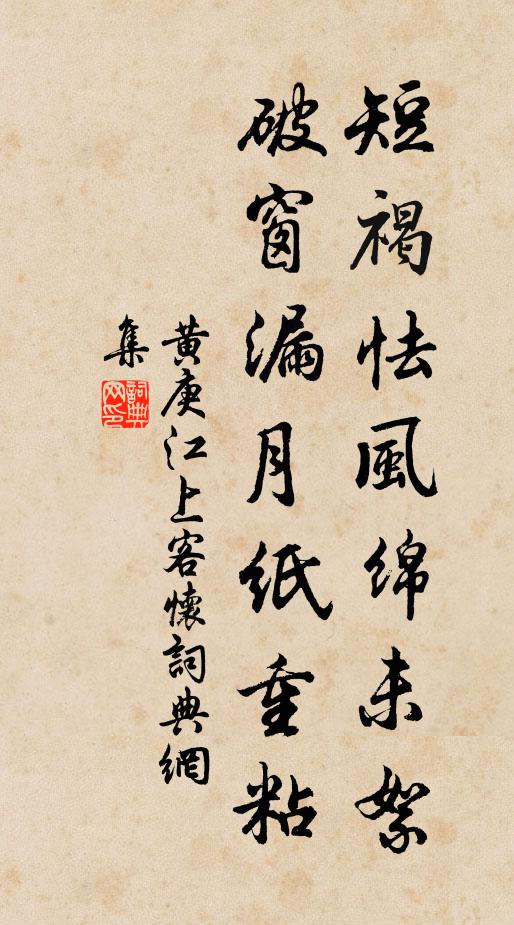 短褐怯風綿未絮
破窗漏月紙重粘
黄庚江上客懷詞典網
集
詞典
网印